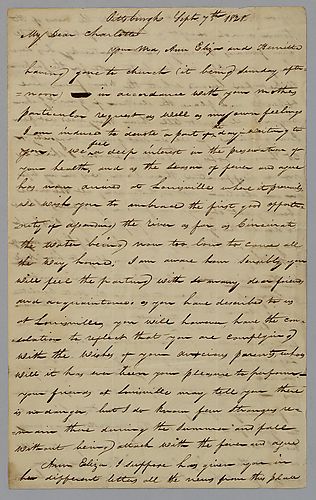 Pittsburgh Sept 7th 1828
My Dear Charlotte
Your Ma, Ann Eliza and
having gone to church (it being) Sunday after-
noon in accordance with your mothers
particular request as well as my own feelings
I am induced to devote a part of day writing to
you. We feel a deep interest in the preservation of
your health, and as the season of fever and ague
has now arrived at Louisville where it prevails
we wish you to embrace the first good opportu-
nity of ascending the river as far as Cincinnati
the water being now too low to come all
the way home. I am aware how sensibly you
will feel the parting with so many dear friends
and acquaintances as you have described to us
at Louisville, you will however have the con-
solation to reflect that you are complying
with the wishes of your anxious parents, whose
will it has ever been your pleasure to perform
your friends at Louisville may tell you there
is no danger but I do know few strangers re-
main there during the summer and fall
without being attack with the fever and ague
Ann Eliza I suppose has given you in
her different letters all the news from this place